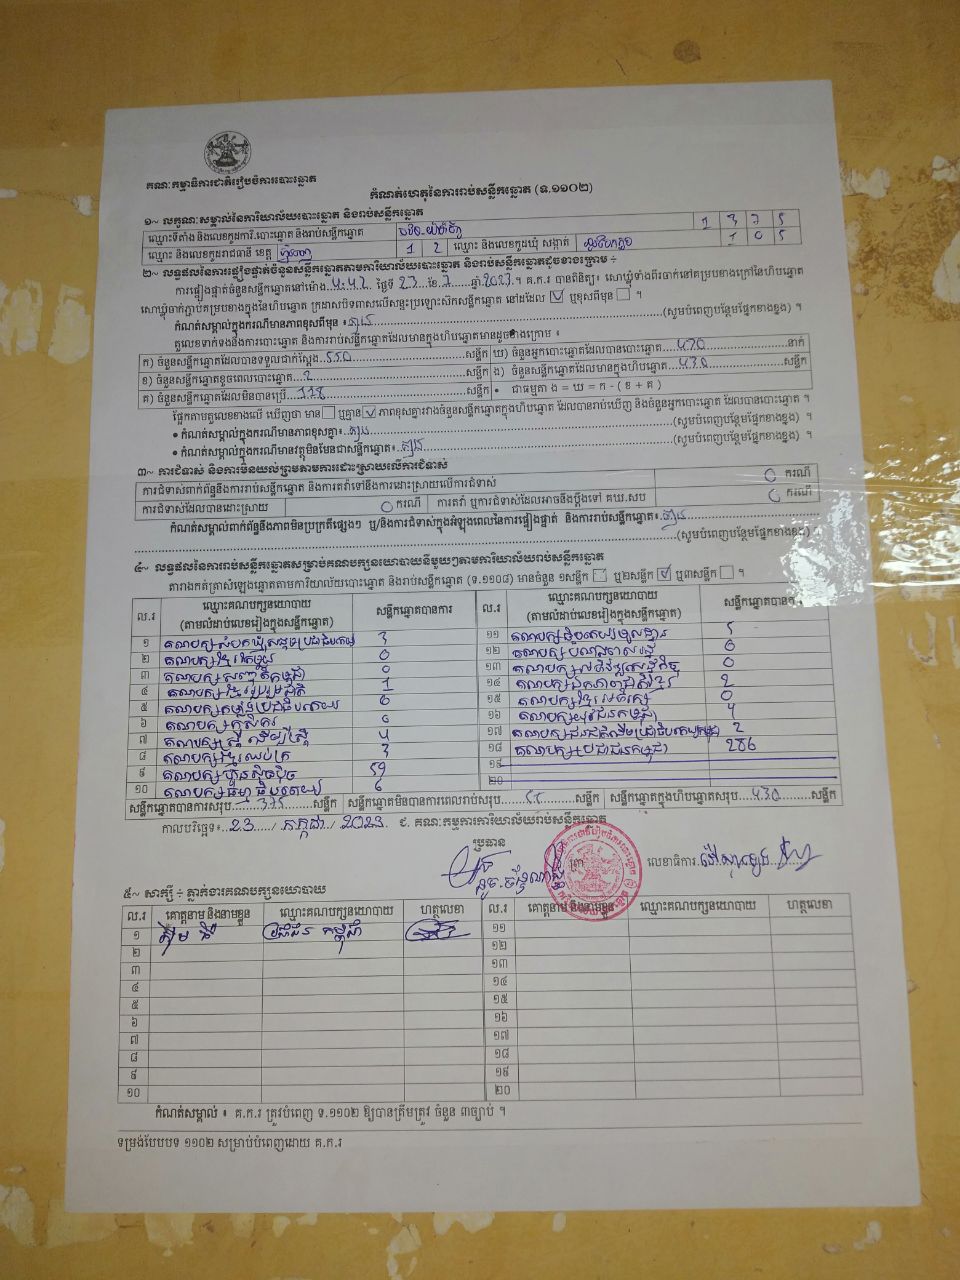 គណៈកម្មាធិការជាតិរៀបចំការបោះឆ្នោត
កំណត់ហេតុនៃការរាប់សន្លឹកឆ្នោត (ទ.១១០២)
១~ លក្ខណៈសម្គាល់នៃការិយាល័យបោះឆ្នោត និងរាប់សន្លឹកឆ្នោត
ឈ្មោះទីតាំង និងលេខកូដការិ.បោះឆ្នោត និងរាប់សន្លឹកឆ្នោត 1 3 7 5
ឈ្មោះ និងលេខកូដរាជធានី ខេត្ត ភ្នំពេញ 1 2 ឈ្មោះ និងលេខកូដឃុំ សង្កាត់ 1 0 5
២~ លទ្ធផលនៃការផ្ទៀងផ្ទាត់ចំនួនសន្លឹកឆ្នោតតាមការិយាល័យបោះឆ្នោត និងរាប់សន្លឹកឆ្នោតដូចខាងក្រោម ÷
ការផ្ទៀងផ្ទាត់ចំនួនសន្លឹកឆ្នោតនៅម៉ោង ថ្ងៃទី 23 ខែ 7 ឆ្នាំ 2023 ។ គ.ក.រ បានពិនិត្យ ៖ សោឃ្លុំទាំងពីរចាក់នៅគម្របខាងក្រៅនៃហិបឆ្នោត
សោឃ្លុំចាក់ភ្ជាប់គម្របខាងក្នុងនៃហិបឆ្នោត ក្រដាសបិទពាសលើសន្ទះប្រឡោះសឹកសន្លឹកឆ្នោត នៅដដែល ឬខុសពីមុន ។
កំណត់សម្គាល់ក្នុងករណីមានភាពខុសពីមុន ៖ គ្មាន (សូមបំពេញបន្ថែមខាងខ្នង) ។
តួលេខទាក់ទងនឹងការបោះឆ្នោត និងការរាប់សន្លឹកឆ្នោតដែលមានក្នុងហិបឆ្នោតមានដូចខាងក្រោម ៖
ក) ចំនួនសន្លឹកឆ្នោតដែលបានទទួលជាក់ស្តែង 550 សន្លឹក ឃ) ចំនួនអ្នកបោះឆ្នោតដែលបានបោះឆ្នោត 430 នាក់
ខ) ចំនួនសន្លឹកឆ្នោតខូចពេលបោះឆ្នោត 2 សន្លឹក ង) ចំនួនសន្លឹកឆ្នោតដែលមានក្នុងហិបឆ្នោត 430 សន្លឹក
គ) ចំនួនសន្លឹកឆ្នោតដែលមិនបានប្រើ 118 សន្លឹក • ជាធម្មតា ង = ឃ = ក - ( ខ + គ )
ផ្អែកតាមតួលេខខាងលើ ឃើញថា មាន ឬគ្មាន ភាពខុសគ្នារវាងចំនួនសន្លឹកឆ្នោតក្នុងហិបឆ្នោត ដែលបានរាប់ឃើញ និងចំនួនអ្នកបោះឆ្នោត ដែលបានបោះឆ្នោត ។
• កំណត់សម្គាល់ក្នុងករណីមានភាពខុសគ្នា៖ គ្មាន (សូមបំពេញបន្ថែមខាងខ្នង) ។
• កំណត់សម្គាល់ក្នុងករណីមានវត្ថុមិនមែនជាសន្លឹកឆ្នោត៖ គ្មាន (សូមបំពេញបន្ថែមខាងខ្នង) ។
៣~ ការជំទាស់ និងការមិនយល់ព្រមតាមការដោះស្រាយលើការជំទាស់
ការជំទាស់ពាក់ព័ន្ធនឹងការរាប់សន្លឹកឆ្នោត និងការតវ៉ាទៅនឹងការដោះស្រាយលើការជំទាស់ 0 ករណី
ការជំទាស់ដែលបានដោះស្រាយ 0 ករណី ការតវ៉ា ឬការជំទាស់ដែលអាចនឹងប្តឹងទៅ គឃ.សប 0 ករណី
កំណត់សម្គាល់ពាក់ព័ន្ធនឹងភាពមិនប្រក្រតីផ្សេងៗ ឬ/និងការជំទាស់ក្នុងអំឡុងពេលនៃការផ្ទៀងផ្ទាត់ និងការរាប់សន្លឹកឆ្នោត៖ គ្មាន
(សូមបំពេញបន្ថែមផ្នែកខាងខ្នង) ។
៤~ លទ្ធផលនៃការរាប់សន្លឹកឆ្នោតសម្រាប់គណបក្សនយោបាយនីមួយៗតាមការិយាល័យរាប់សន្លឹកឆ្នោត
តារាងកត់ត្រាសំឡេងឆ្នោតតាមការិយាល័យបោះឆ្នោត និងរាប់សន្លឹកឆ្នោត (ទ.១១០៨) មានចំនួន ១សន្លឹក ឬ២សន្លឹក ឬ៣សន្លឹក ។
ល.រ ឈ្មោះគណបក្សនយោបាយ (តាមលំដាប់លេខរៀងក្នុងសន្លឹកឆ្នោត) សន្លឹកឆ្នោតបានការ ល.រ ឈ្មោះគណបក្សនយោបាយ (តាមលំដាប់លេខរៀងក្នុងសន្លឹកឆ្នោត) សន្លឹកឆ្នោតបានការ
១ គណបក្សសំបុកឃ្មុំសង្គមប្រជាធិបតេយ្យ 3 ១១ 5
២ គណបក្សខ្មែរអភិវឌ្ឍន៍ 0 ១២ 0
៣ គណបក្សសញ្ជាតិកម្ពុជា 0 ១៣ 0
៤ គណបក្សខ្មែររួបរួមជាតិ 1 ១៤ 2
៥ គណបក្សកម្លាំងប្រជាធិបតេយ្យ 0 ១៥ 0
៦ គណបក្សកសិករ ១៦ គណបក្សយុវជនកម្ពុជា 4
៧ គណបក្សស្ត្រីដើម្បីស្ត្រី 4 ១៧ គណបក្សជនជាតិដើមប្រជាធិបតេយ្យកម្ពុជា 2
៨ គណបក្សខ្មែរឈប់ក្រ 3 ១៨ គណបក្សប្រជាជនកម្ពុជា 286
៩ គណបក្សហ៊្វុនស៊ិនប៉ិច 59 ១៩
១០ គណបក្សធម្មាធិបតេយ្យ 6 ២០
សន្លឹកឆ្នោតបានការសរុប 375 សន្លឹក សន្លឹកឆ្នោតមិនបានការពេលរាប់សរុប 55 សន្លឹក សន្លឹកឆ្នោតក្នុងហិបឆ្នោតសរុប 430 សន្លឹក
កាលបរិច្ឆេទ៖ 23 / កក្កដា / 2023 ជ. គណៈកម្មការការិយាល័យរាប់សន្លឹកឆ្នោត
ប្រធាន
លេខាធិការ
៥~ សាក្សី ÷ ភ្នាក់ងារគណបក្សនយោបាយ
ល.រ គោត្តនាម និងនាមខ្លួន ឈ្មោះគណបក្សនយោបាយ ហត្ថលេខា ល.រ គោត្តនាម និងនាមខ្លួន ឈ្មោះគណបក្សនយោបាយ ហត្ថលេខា
១ ប្រជាជន កម្ពុជា ១១
២ ១២
៣ ១៣
៤ ១៤
៥ ១៥
៦ ១៦
៧ ១៧
៨ ១៨
៩ ១៩
១០ ២០
កំណត់សម្គាល់ ៖ គ.ក.រ ត្រូវបំពេញ ទ.១១០២ ឱ្យបានត្រឹមត្រូវ ចំនួន ៣ច្បាប់ ។
ទម្រង់បែបបទ ១១០២ សម្រាប់បំពេញដោយ គ.ក.រ